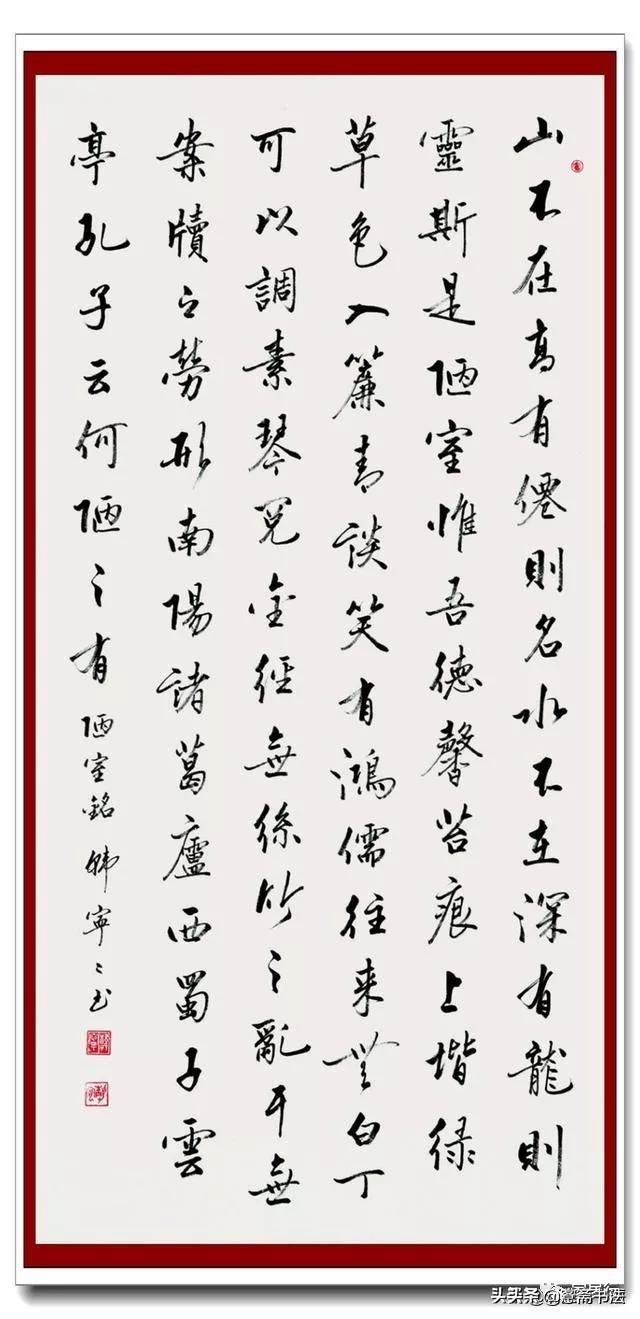 山不在高有僊則名水不在深有龍則
靈斯是陋室惟吾德馨苔痕上堦緑
草色入簾青談笑有鴻儒往来無白丁
可以調素琴閱金經無絲竹之亂耳無
案牘之勞形南陽諸葛廬西蜀子雲
亭孔子云何陋之有
陋室銘 韩寧々书
头条 @斋书法